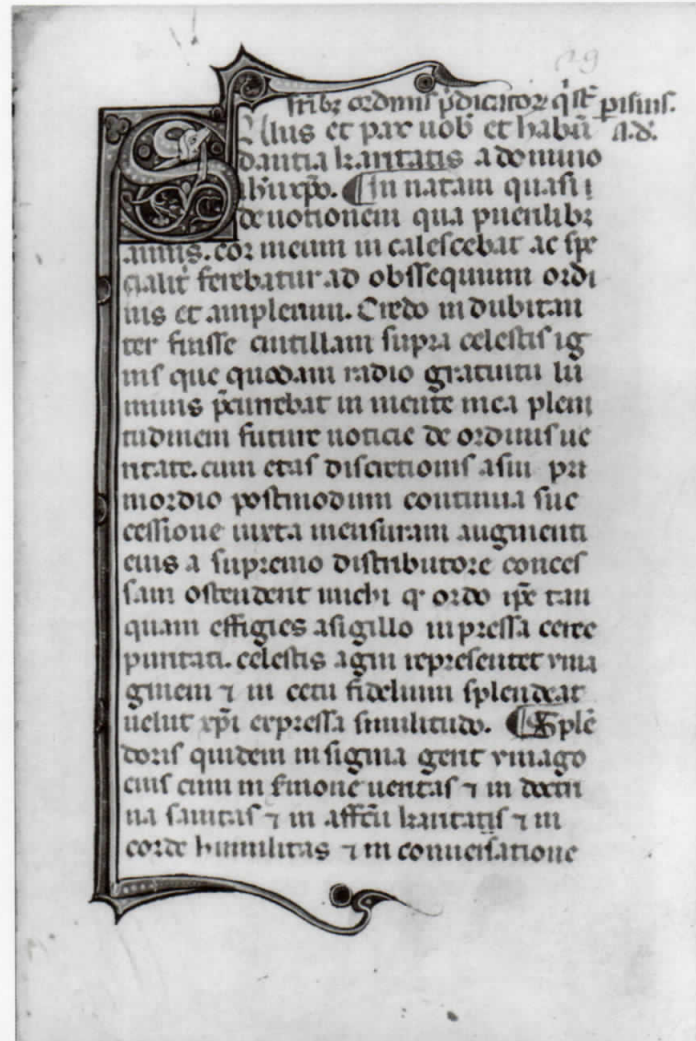 fr̄ibꝫ ordinis p̄dicatoꝝ q̄ sūt pisinis.
Alus et pax uob̄ et habū a.d.
dantia karitatis a domino
ih̄u xp̄o. ¶ In natam quasi i
deuotionem qua puerilibꝫ
annis. cor meum in calescebat ac spe
cialit̄ ferebatur ad obssequium ordi
nis et amplexum. Credo indubitan
ter fuisse cintillam supra celestis ig
nis que quodam radio gratuitu lu
minis p̄currebat in mente mea pleni
tudinem future noticie de ordinis ue
ritate. cum etas discretionis a sui pri
mordio postmodum continua suc
cessione iuxta mensuram augmenti
eius a supremo distributore conces
sam ostenderit michi ꝙ ordo ip̄e tan
quam effigies a sigillo inpressa cere
puritati. celestis agni representet yma
ginem ⁊ in cetu fidelium splendeat
uelut xp̄i expressa similitudo. ¶ Splē
doris quidem insignia gerit ymago
eius cum in s̄mone ueritas ⁊ in doctri
na sanitas ⁊ in affc̄u karitatis ⁊ in
corde humilitas ⁊ in conuersatione